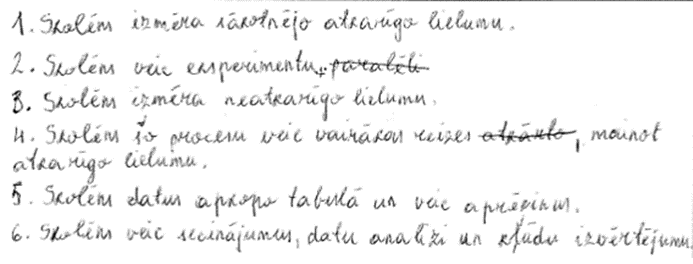 1. Skolēns izmēra sākotnējo atkarīgo lielumu.
2. Skolēns veic eksperimentu. paralēli
3. Skolēns izmēra neatkarīgo lielumu.
4. Skolēns šo procesu veic vairākas reizes atkārto, mainot
atkarīgo lielumu.
5. Skolēns datus apkopo tabulā un veic aprēķinus.
6. Skolēns veic secinājumus, datu analīzi un kļūdu izvērtējumu.